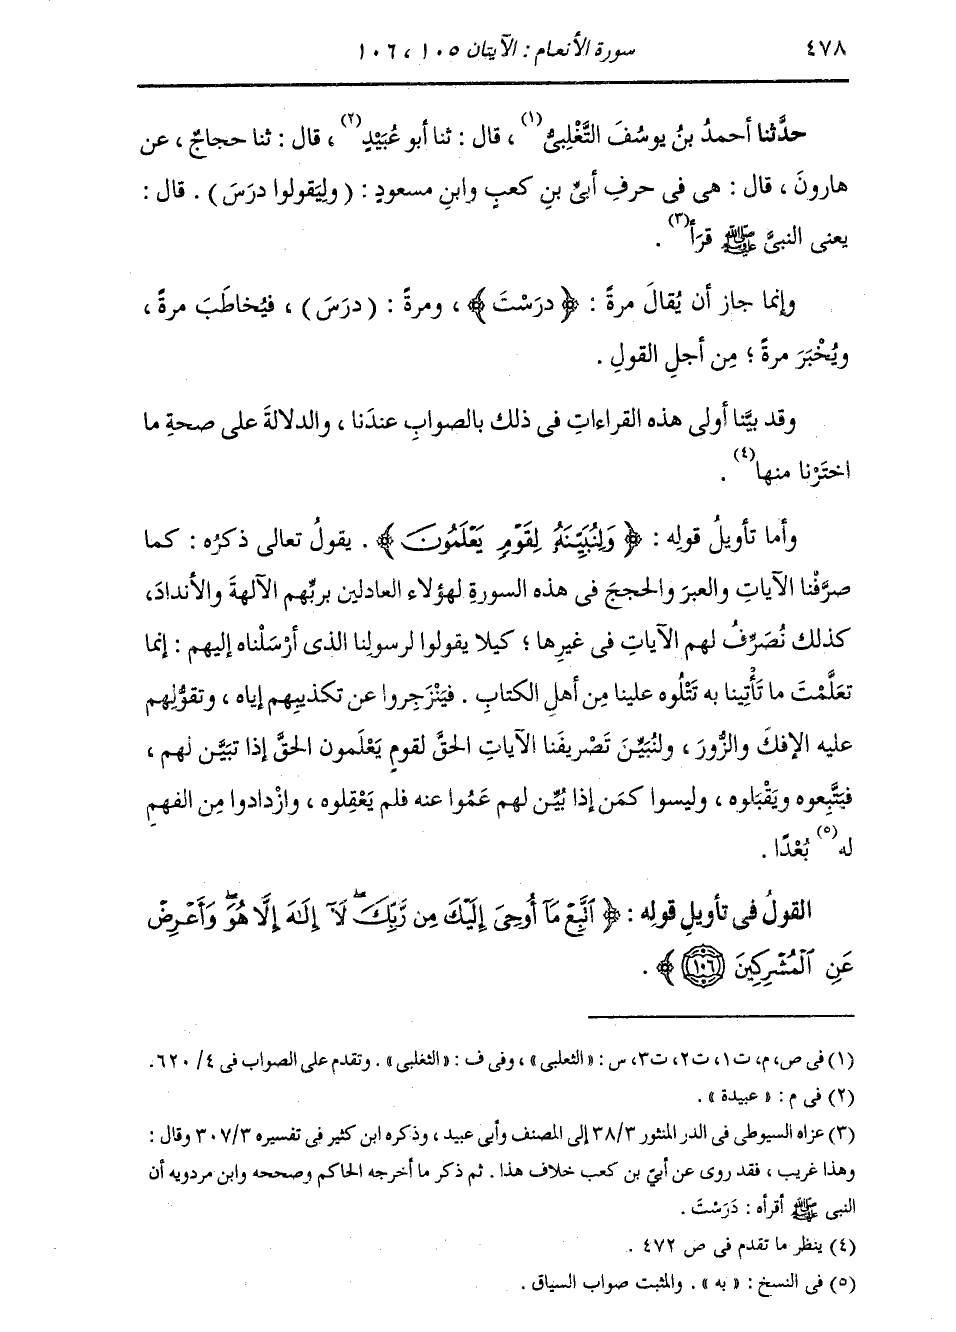 ٤٧٨ سورة الأنعام : الآيتان ١٠٥ ، ١٠٦
حدَّثنا أحمدُ بنُ يوسُفَ التَّغْلِبيُّ(١) ، قال : ثنا أبو عُبَيْدٍ(٢) ، قال : ثنا حجاجٌ ، عن
هارونَ ، قال : هى فى حرفِ أُبىِّ بنِ كعبٍ وابنِ مسعودٍ : ( ولِيَقولوا درَسَ ) . قال :
يعنى النبىَّ ﷺ قرَأ(٣) .
وإنما جاز أن يُقالَ مرةً : ﴿ درَسْتَ ﴾ ، ومرةً : ( درَسَ ) ، فيُخاطَبَ مرةً ،
ويُخْبَرَ مرةً ؛ مِن أجلِ القولِ .
وقد بيَّنا أولى هذه القراءاتِ فى ذلك بالصوابِ عندَنا ، والدلالةَ على صحةِ ما
اختَرْنا منها(٤) .
وأما تأويلُ قولِه : ﴿ وَلِنُبَيِّنَهُ لِقَوْمٍ يَعْلَمُونَ ﴾ . يقولُ تعالى ذكرُه : كما
صرَّفْنا الآياتِ والعبرَ والحججَ فى هذه السورةِ لهؤلاء العادلين بربِّهم الآلهةَ والأندادَ،
كذلك نُصَرِّفُ لهم الآياتِ فى غيرِها ؛ كيلا يقولوا لرسولِنا الذى أرْسَلْناه إليهم : إنما
تعَلَّمْتَ ما تَأْتِينا به تَتْلُوه علينا مِن أهلِ الكتابِ . فيَنْزَجِروا عن تكذيبِهم إياه ، وتقوُّلِهم
عليه الإفكَ والزُّورَ ، ولنُبَيِّنَ تَصْريفَنا الآياتِ الحقَّ لقومٍ يَعْلَمون الحقَّ إذا تبَيَّن لهم ،
فيَتَّبِعوه ويَقْبَلوه ، وليسوا كمَن إذا بُيِّن لهم عَمُوا عنه فلم يَعْقِلوه ، وازْدادوا مِن الفهمِ
له(٥) بُعْدًا .
القولُ فى تأويلِ قولِه : ﴿ ٱتَّبِعْ مَآ أُوحِىَ إِلَيْكَ مِن رَّبِّكَۖ لَآ إِلَٰهَ إِلَّا هُوَۖ وَأَعْرِضْ
عَنِ ٱلْمُشْرِكِينَ ١٠٦ ﴾ .
(١) فى ص، م، ت١، ت٢، ت٣، س : «الثعلبى» ، وفى ف : «الثغلبى» . وتقدم على الصواب فى ٤/ ٦٢٠.
(٢) فى م : « عبيدة » .
(٣) عزاه السيوطى فى الدر المنثور ٣٨/٣ إلى المصنف وأبى عبيد ، وذكره ابن كثير فى تفسيره ٣٠٧/٣ وقال :
وهذا غريب ، فقد روى عن أبيّ بن كعب خلاف هذا . ثم ذكر ما أخرجه الحاكم وصححه وابن مردويه أن
النبى ﷺ أقرأه : دَرَسْتَ .
(٤) ينظر ما تقدم فى ص ٤٧٢ .
(٥) فى النسخ : « به » . والمثبت صواب السياق .